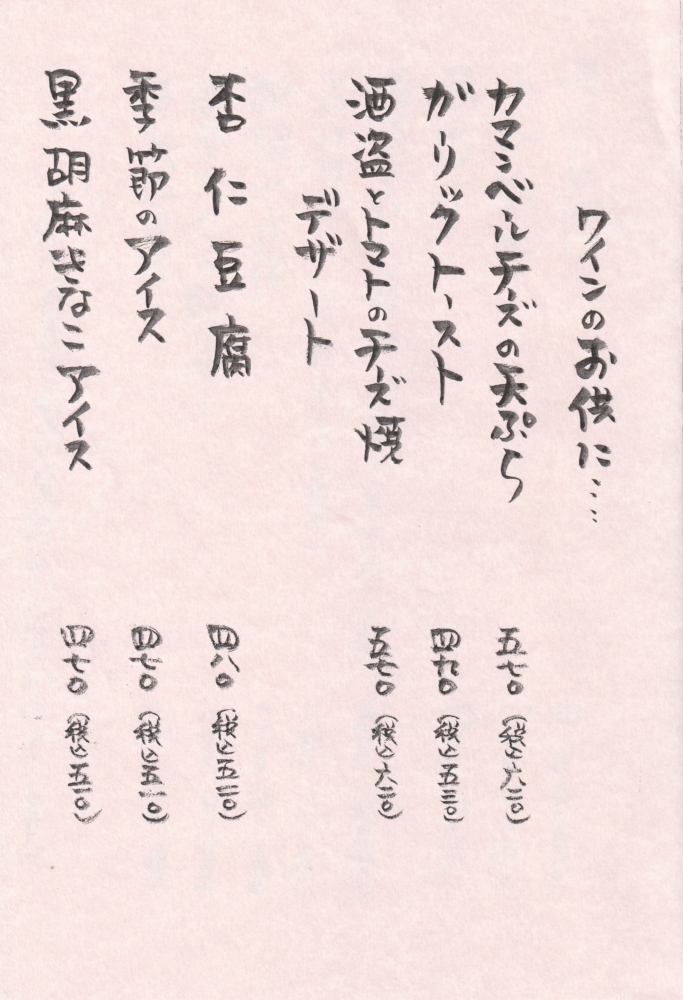 ワインのお供に……
カマンベールチーズの天ぷら 五七〇（税込六二〇）
ガーリックトースト 四九〇（税込五三〇）
酒盗とトマトのチーズ焼 五七〇（税込六二〇）
デザート
杏仁豆腐 四八〇（税込五二〇）
季節のアイス 四七〇（税込五一〇）
黒胡麻きなこアイス 四七〇（税込五一〇）